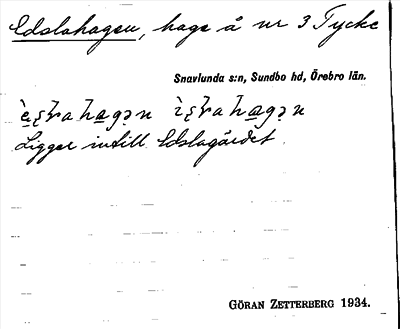 Edslahagen, hage å nr 3 Tycke
Snavlunda s:n, Sundbo hd, Örebro län.
Ligger intill Edslagärdet.
GÖRAN ZETTERBERG 1934.